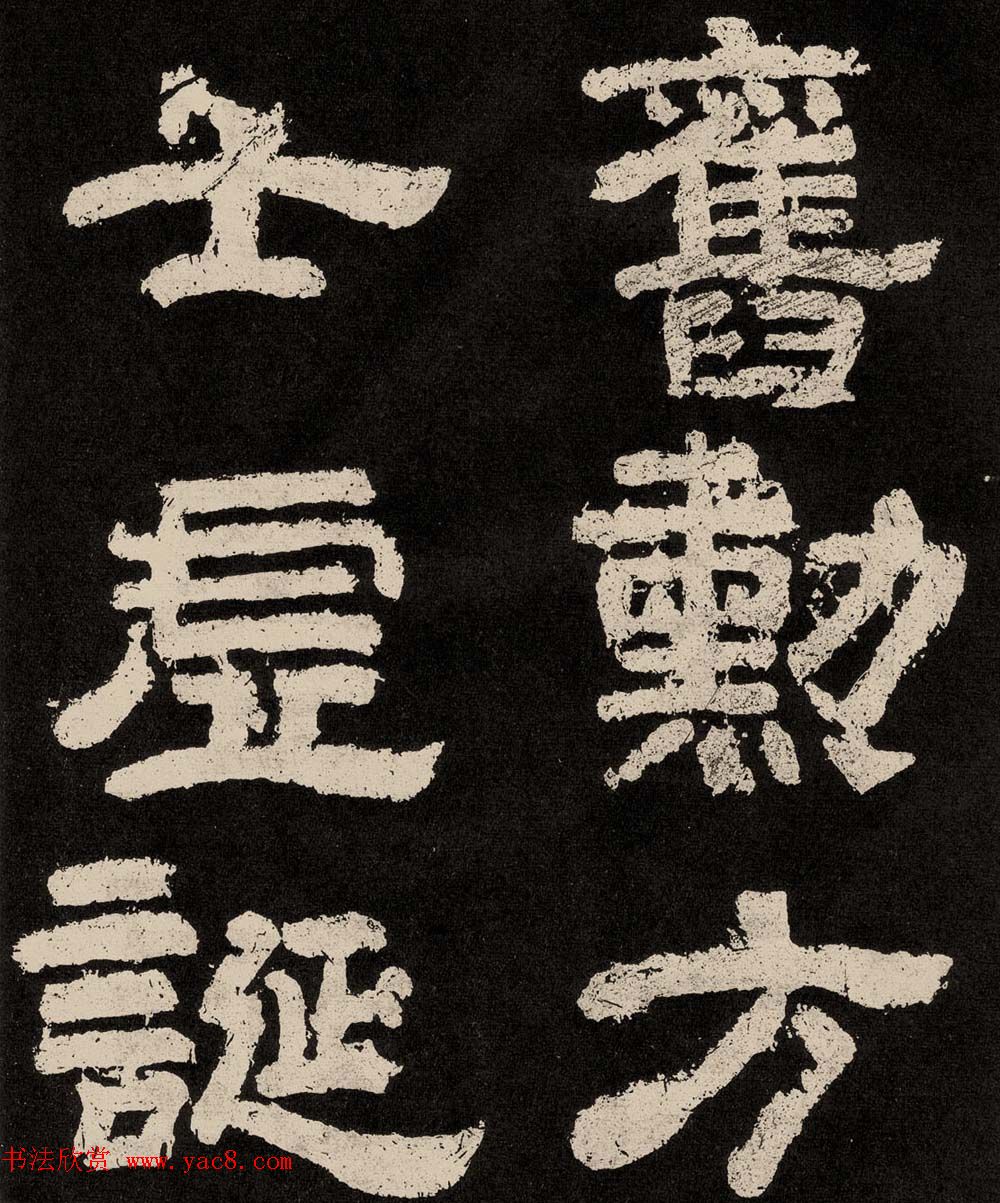 舊勲方
士虛誕
书法欣赏 www.yac8.com